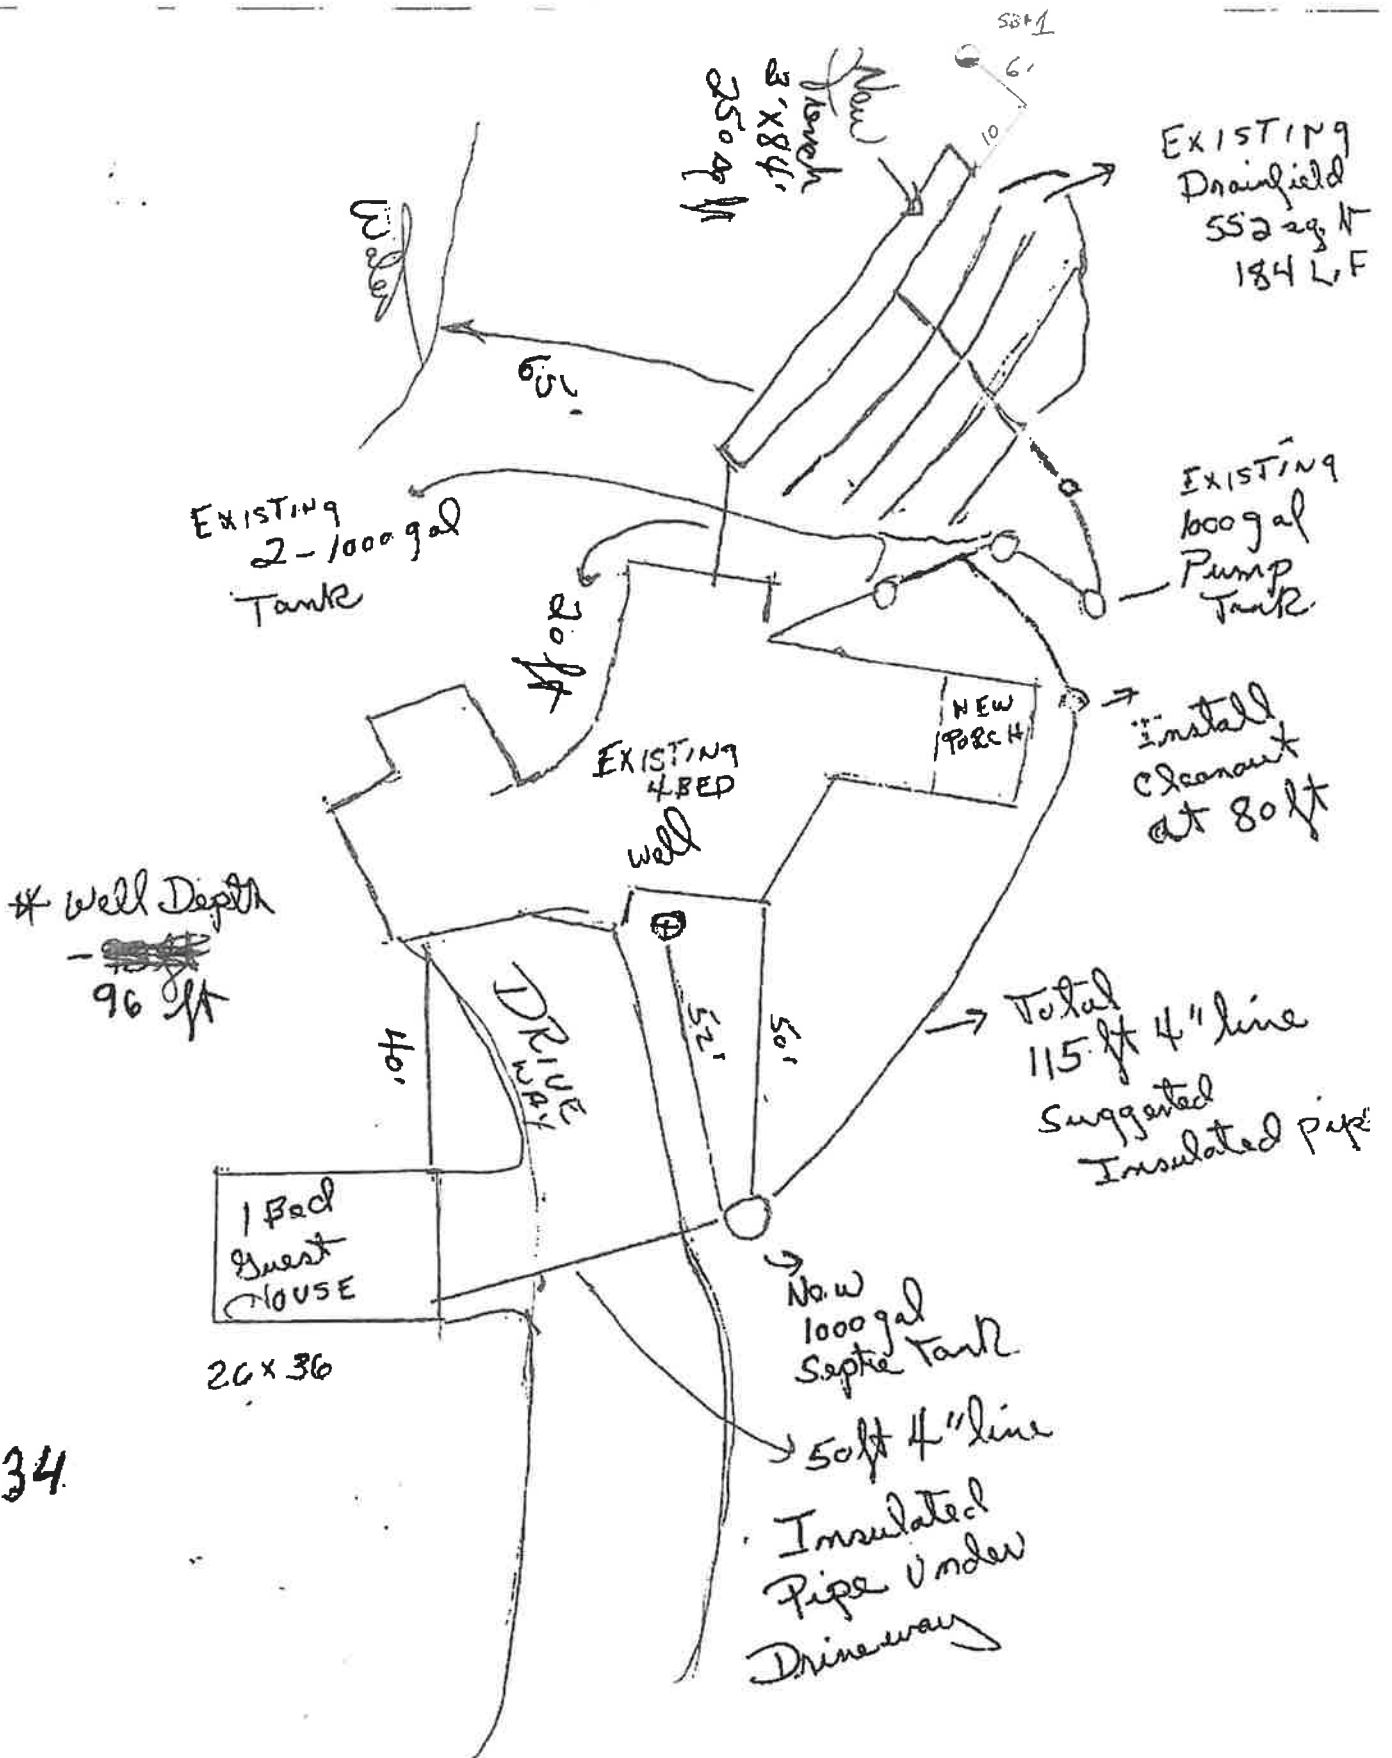 SB#1
6'
10
New
Trench
3'x84'
250 sq ft
EXISTING
Drainfield
552 sq ft
184 L.F
65'
EXISTING
2-1000 gal
Tank
EXISTING
1000 gal
Pump
Tank
20 ft
NEW
PORCH
Install
Cleanout
at 80 ft
EXISTING
4 BED
well
* Well Depth
-
96 ft
DRIVE
WAY
40'
52'
50'
Total
115 ft 4" line
Suggested
Insulated pipe
1 Bed
Guest
House
26 x 36
New
1000 gal
Septic Tank
50ft 4" line
Insulated
Pipe Under
Driveway
34